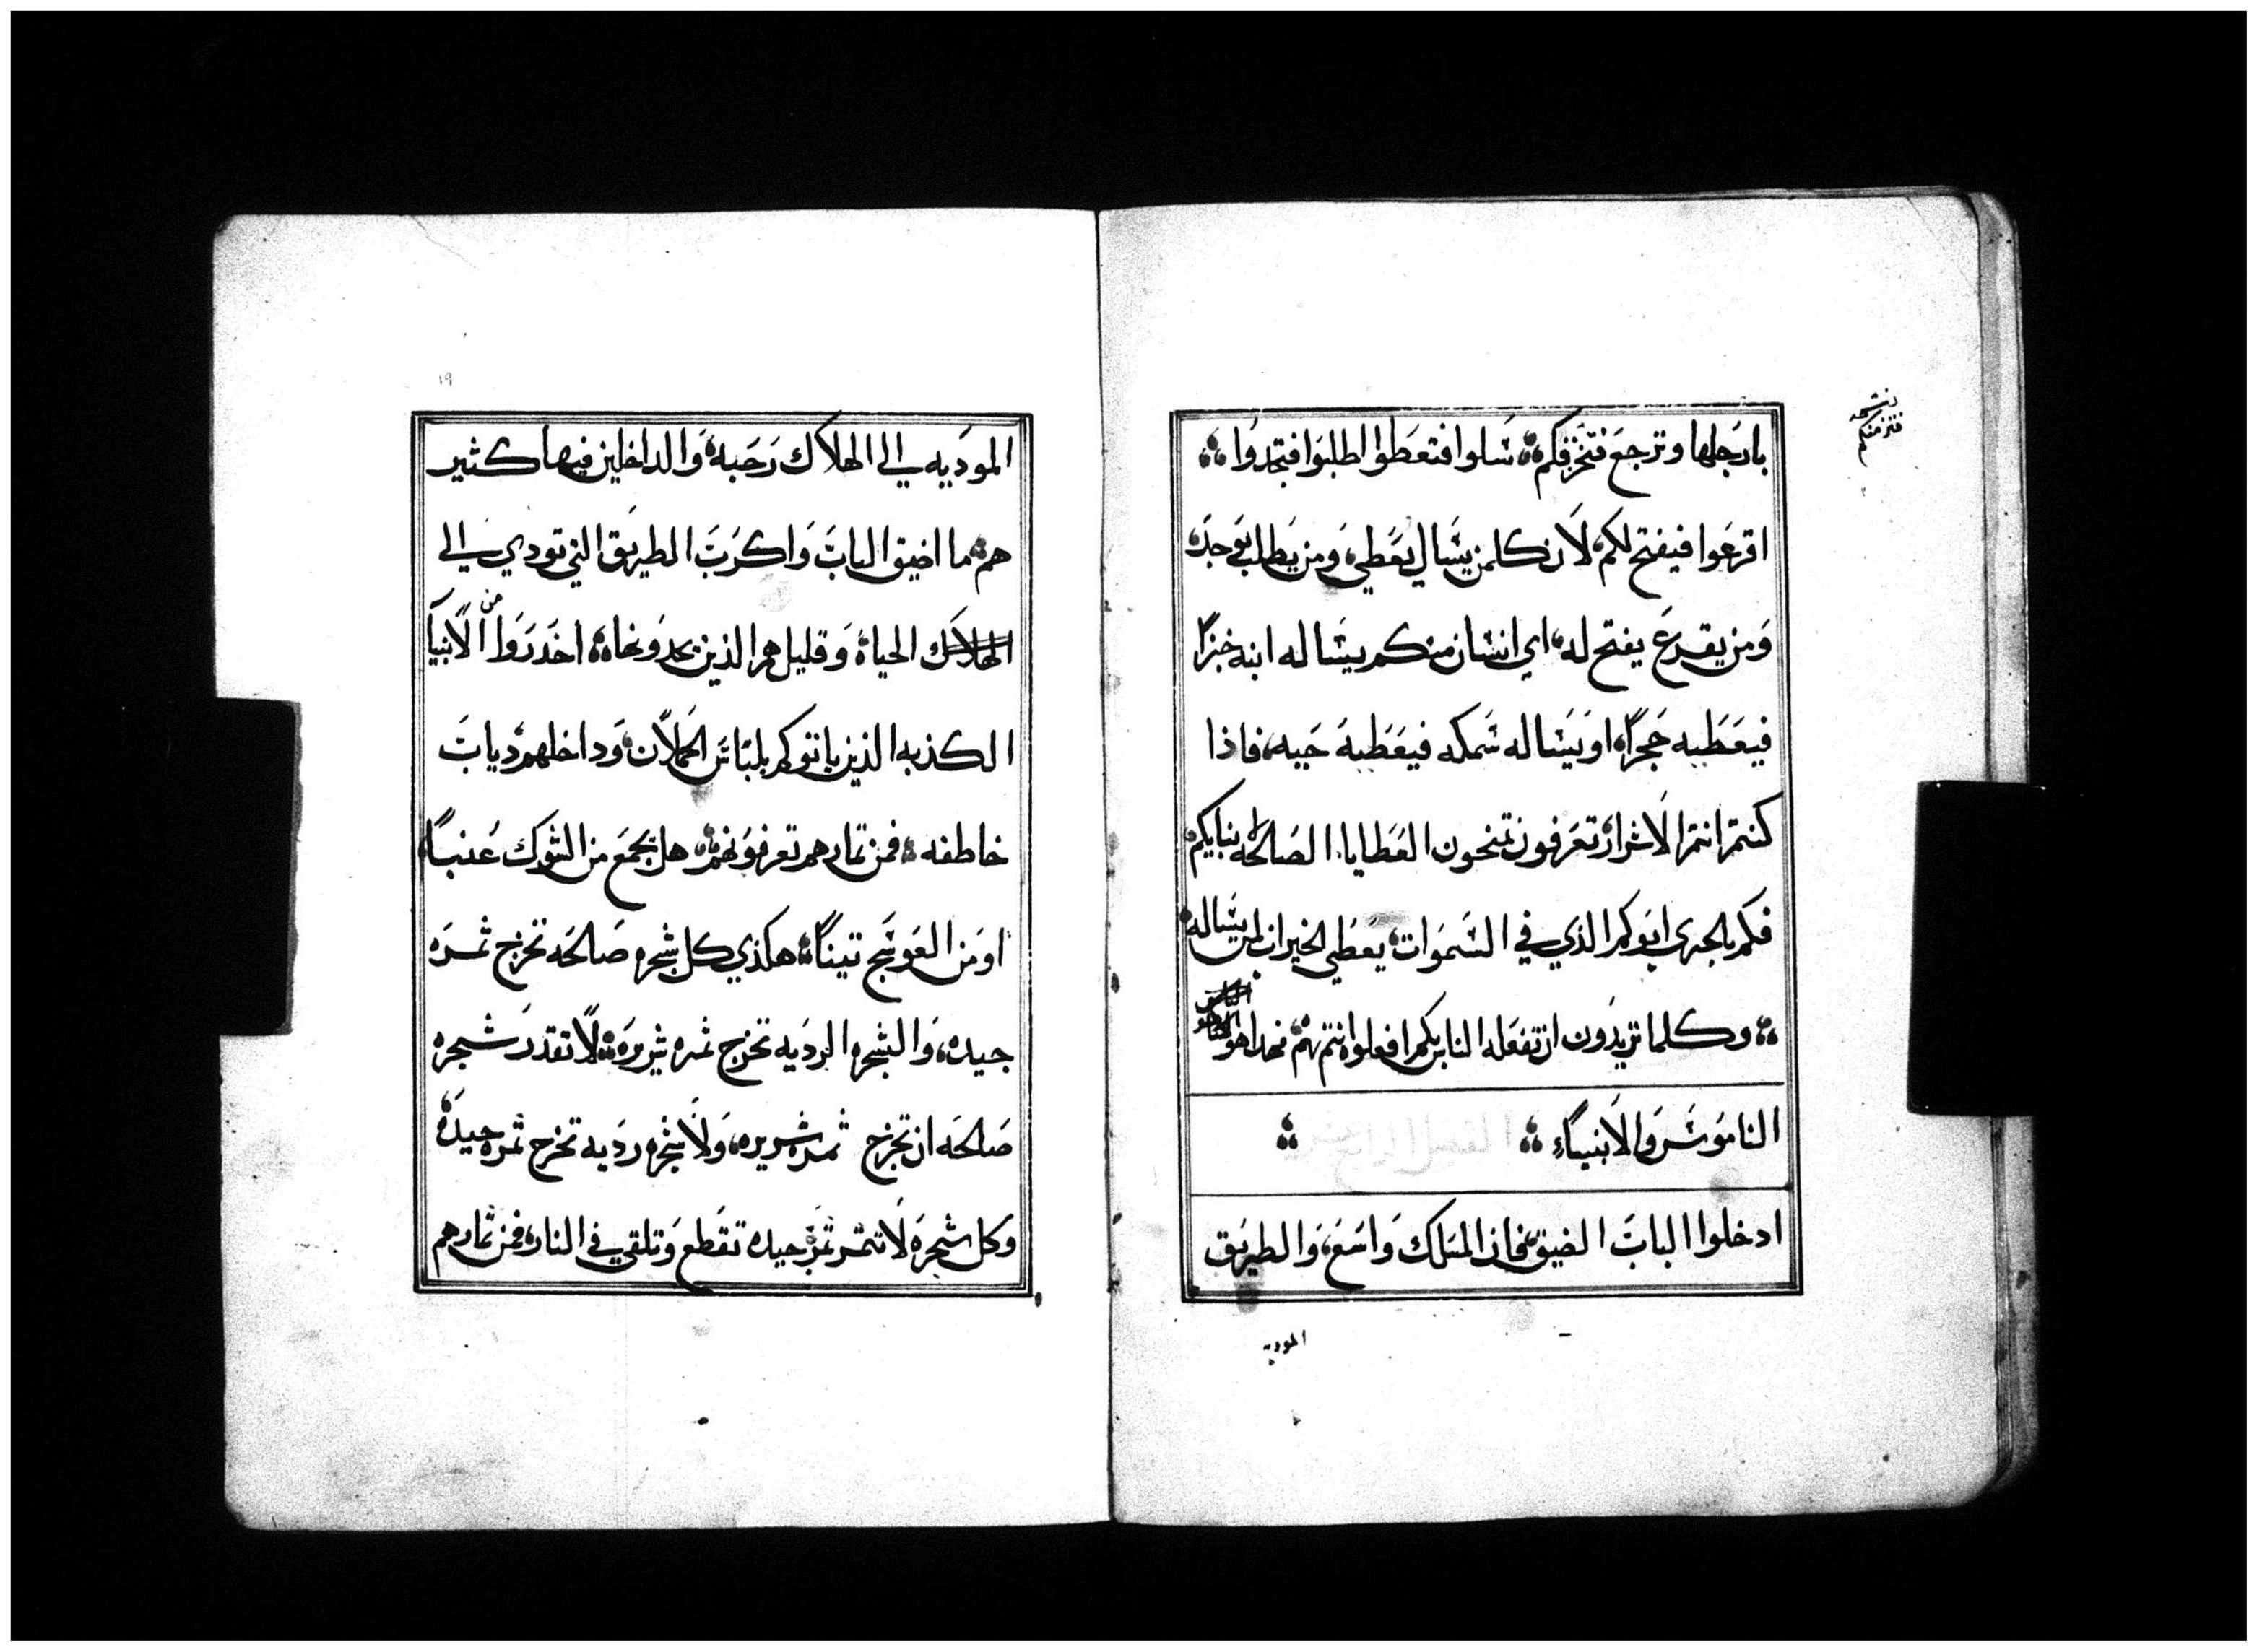 بارجلها وترجع فتخزقكم سلوا فتعطوا اطلبوا فتجدوا
اقرعوا فيفتح لكم لان كلمن يسال يعطي ومن يطلب يوجد
ومن يقرع يفتح له اي انسان منكم يساله ابنه خبزًا
فيعطيه حجرًا او يساله سمكه فيعطيه حيه فاذا
كنتم انتم الاشرار تعرفون تمنحون العطايا الصالحه بنايكم
فكم بالحرى ابوكم الذي في السموات يعطي الخيرات لمن يساله
وكلما تريدون ان تفعله الناس بكم افعلوا انتم بهم فهدا هو
الناموس والانبياء
ادخلوا الباب الضيق فان المسلك واسع والطريق
الموديه
الموديه الى الهلاك رحبه والداخلين فيها كثير
هم ما اضيق الباب واكرب الطريق التي تودي الى
الهلاك الحياة وقليل هم الذين يجدونها احدروا من الانبيا
الكذبه الذين ياتوكم بلباس الحملان وداخلهم دياب
خاطفه فمن ثمارهم تعرفونهم هل يجمع من الشوك عنبًا
او من العوسج تينًا هكذي كل شجره صالحه تخرج ثمره
جيده والشجره الرديه تخرج ثمره شريره لا تقدر شجره
صالحه ان تخرج ثمره شريره ولا شجره رديه تخرج ثمره جيده
وكل شجره لا تثمر ثمره جيده تقطع وتلقى في النار فمن ثمارهم